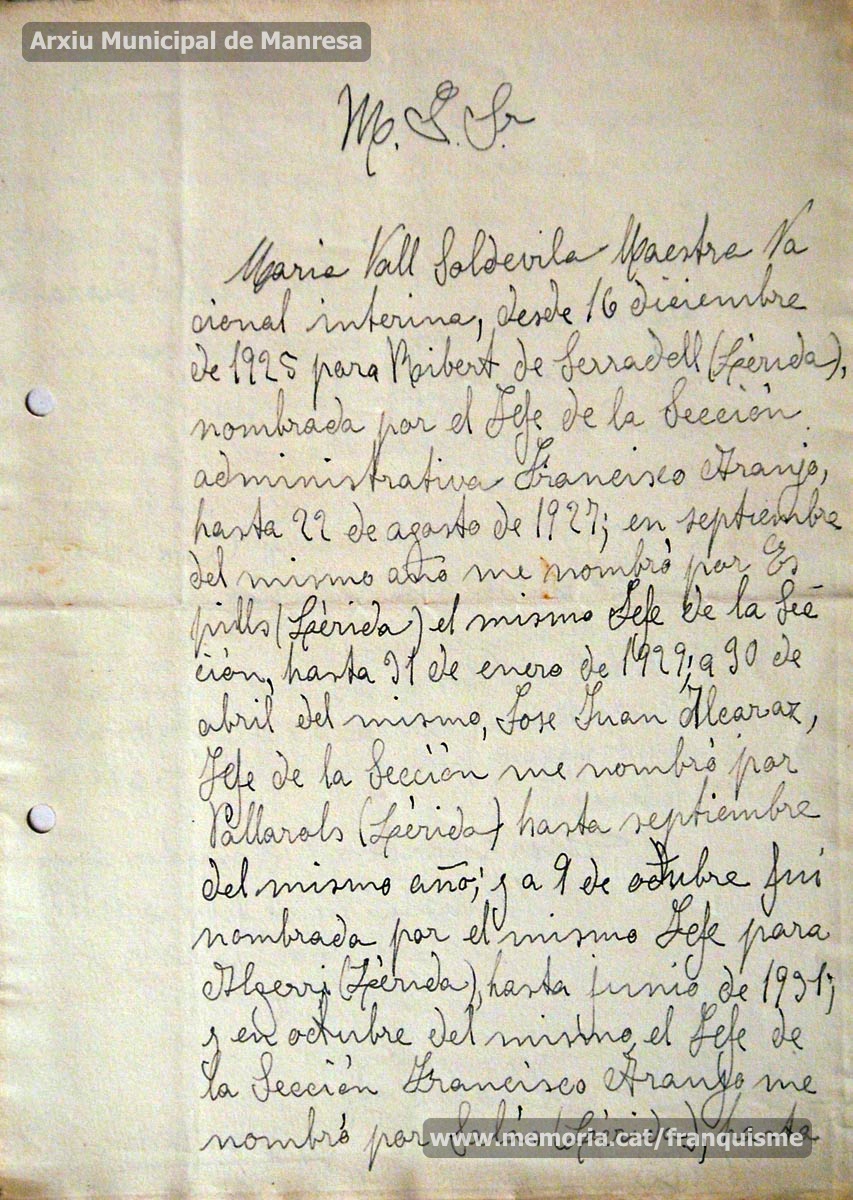 Arxiu Municipal de Manresa
M. I. Sr
Maria Vall Soldevila Maestra Na
cional interina, desde 16 diciembre
de 1925 para Ribert de Serradell (Lérida),
nombrada por el Jefe de la Sección
administrativa Francisco Araujo,
hasta 22 de agosto de 1927; en septiembre
del mismo año me nombró por Es
pills (Lérida) el mismo Jefe de la Sec
ción, hasta 31 de enero de 1929; a 30 de
abril del mismo, Jose Juan Alcaraz,
Jefe de la Sección me nombró por
Pallarols (Lérida) hasta septiembre
del mismo año; y a 9 de octubre fui
nombrada por el mismo Jefe para
Algerri (Lérida), hasta junio de 1931;
y en octubre del mismo, el Jefe de
la Sección Francisco Araujo me
nombró por (Lérida), hasta
www.memoria.cat/franquisme